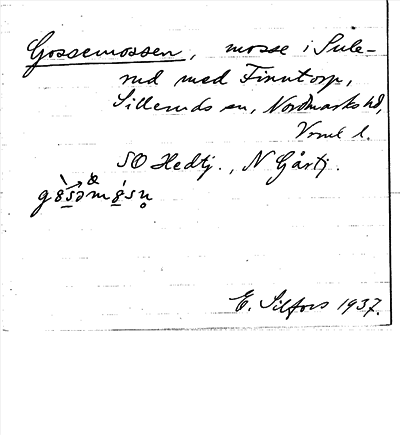 Gossemossen, mosse i Sule-
rud med Finntorp,
Silleruds sn, Nordmarks hd,
Vrml l.
SO Hedtj., N Gårtj.
E. Silfors 1937.